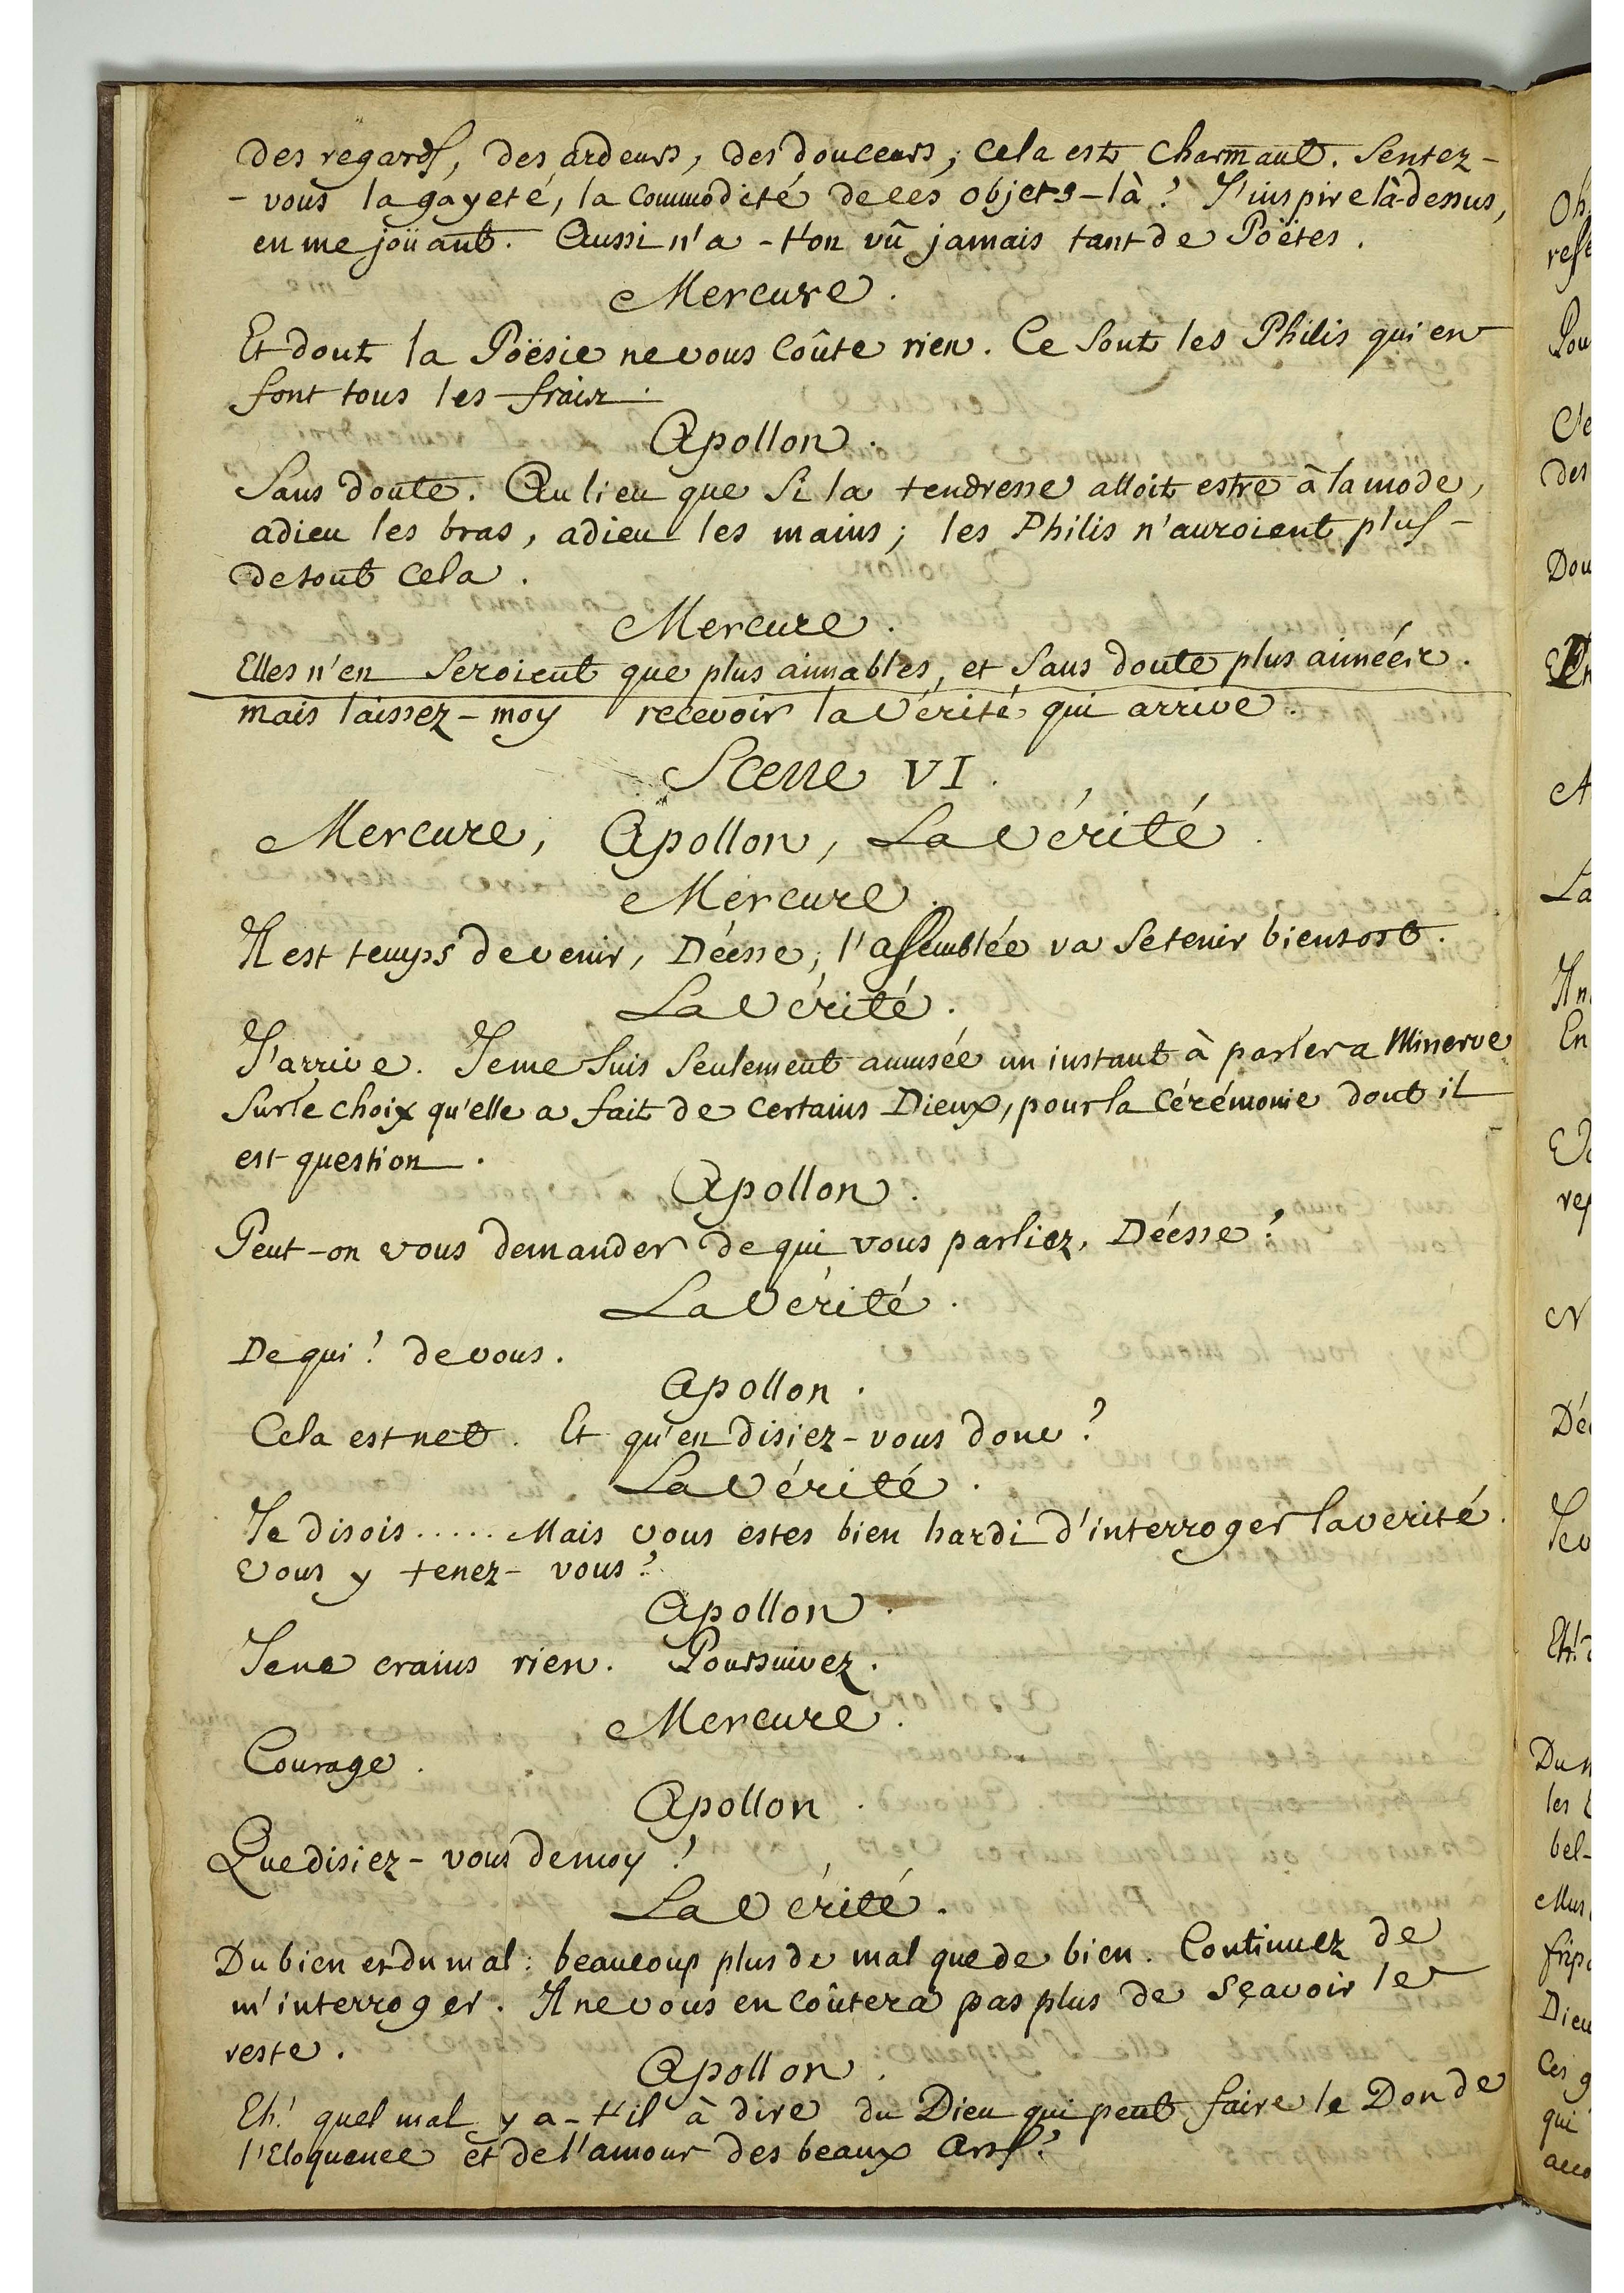 des regards, des ardeurs, des douceurs; cela est charmant. Sentez-
- vous la gayeté, la commodité de ces objets-là? J'inspire là-dessus,
en me joüant. Aussi n'a-t'on vû jamais tant de Poëtes.
Mercure.
Et dont la Poësie ne vous coûte rien. Ce sont les Philis qui en
font tous les frais.
Apollon.
Sans doute. Au lieu que si la tendresse alloit estre à la mode,
adieu les bras, adieu les mains; les Philis n'auroient plus
de tout cela.
Mercure.
Elles n'en seroient que plus aimables, et sans doute plus aimées.
mais laissez-moy recevoir la Vérité qui arrive.
Scene VI.
Mercure, Apollon, La Vérité.
Mercure.
Il est temps de venir, Déesse; l'assemblée va se tenir bientost.
La Vérité.
J'arrive. Je me suis seulement amusée un instant à parler a Minerve
sur le choix qu'elle a fait de certains Dieux, pour la cérémonie dont il
est question.
Apollon.
Peut-on vous demander de qui vous parliez, Déesse?
La Vérité.
De qui? de vous.
Apollon.
Cela est net. Et qu'en disiez-vous donc?
La Vérité.
Je disois..... Mais vous estes bien hardi d'interroger la verité.
Vous y tenez-vous?
Apollon.
Je ne crains rien. Poursuivez.
Mercure.
Courage.
Apollon.
Que disiez-vous de moy?
La Vérité.
Du bien et du mal: beaucoup plus de mal que de bien. Continuez de
m'interroger. Il ne vous en coûtera pas plus de sçavoir le
reste.
Apollon.
Eh! quel mal y a-t'il à dire du Dieu qui peut faire le Don de
l'Eloquence et de l'amour des beaux Arts?